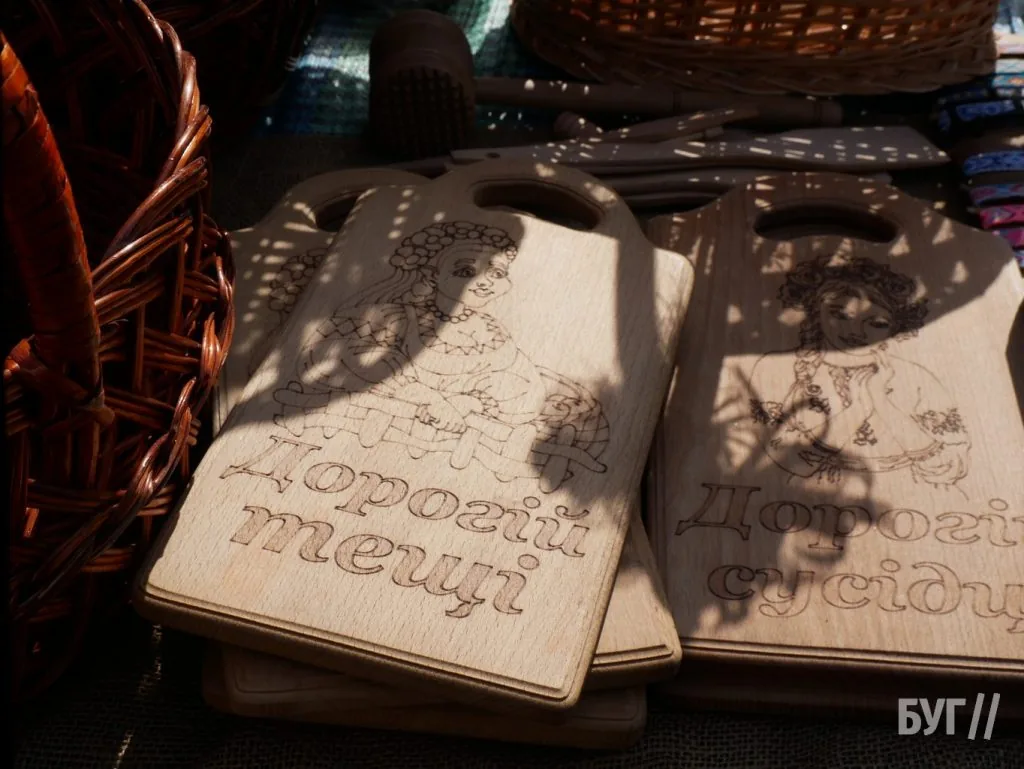 Дорогій
тещі
Дорогій
сусідці
БУГ//